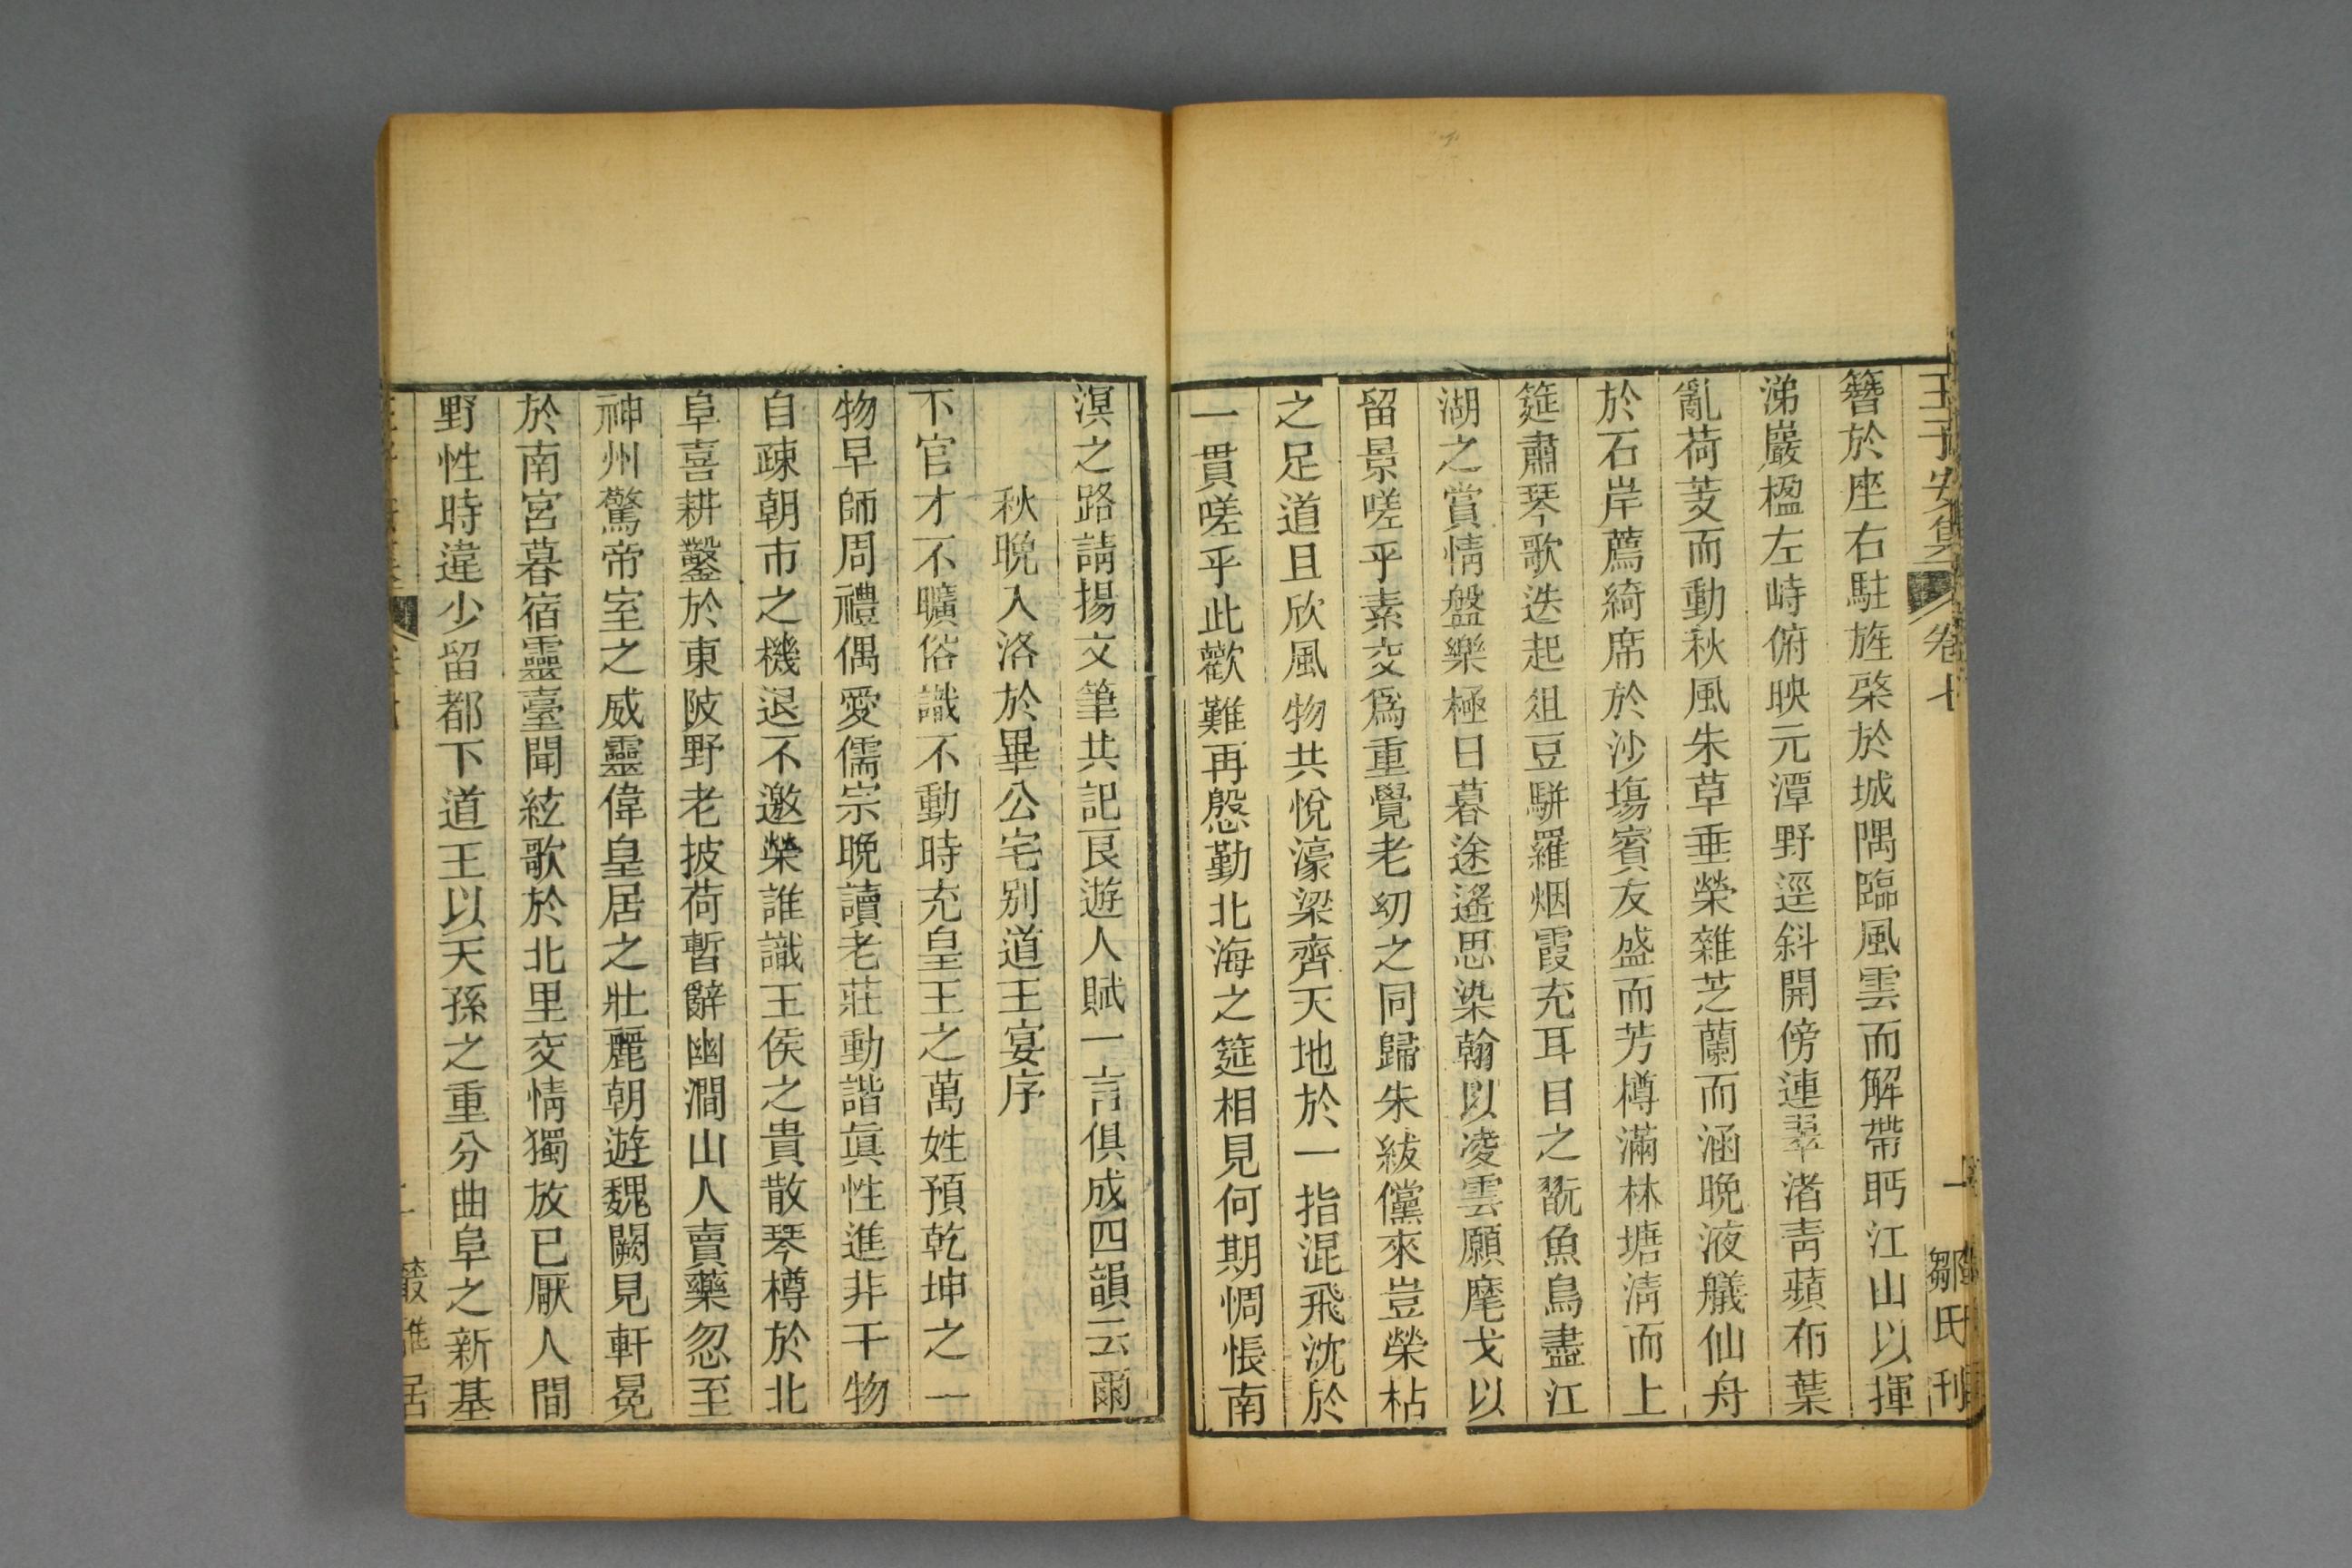 王子安集 卷七 一 鄒氏刊
簪於座右駐旌棨於城隅臨風雲而解帶眄江山以揮
涕巖楹左峙俯映元潭野逕斜開傍連翠渚青蘋布葉
亂荷芰而動秋風朱草垂榮雜芝蘭而涵晚液艤仙舟
於石岸薦綺席於沙塲賓友盛而芳樽滿林塘清而上
筵肅琴歌迭起俎豆駢羅烟霞充耳目之翫魚鳥盡江
湖之賞情盤樂極日暮途遙思染翰以凌雲願麾戈以
留景嗟乎素交爲重覺老幼之同歸朱紱儻來豈榮枯
之足道且欣風物共悅濠梁齊天地於一指混飛沈於
一貫嗟乎此歡難再慇勤北海之筵相見何期惆悵南
溟之路請揚文筆共記良遊人賦一言俱成四韻云爾
秋晚入洛於畢公宅别道王宴序
下官才不曠俗識不動時充皇王之萬姓預乾坤之一
物早師周禮偶愛儒宗晚讀老莊動諧眞性進非干物
自疎朝市之機退不邀榮誰識王侯之貴散琴樽於北
阜喜耕鑿於東陂野老披荷暫辭幽澗山人賣藥忽至
神州驚帝室之威靈偉皇居之壯麗朝遊魏闕見軒冕
於南宮暮宿靈臺聞絃歌於北里交情獨放已厭人間
野性時違少留都下道王以天孫之重分曲阜之新基